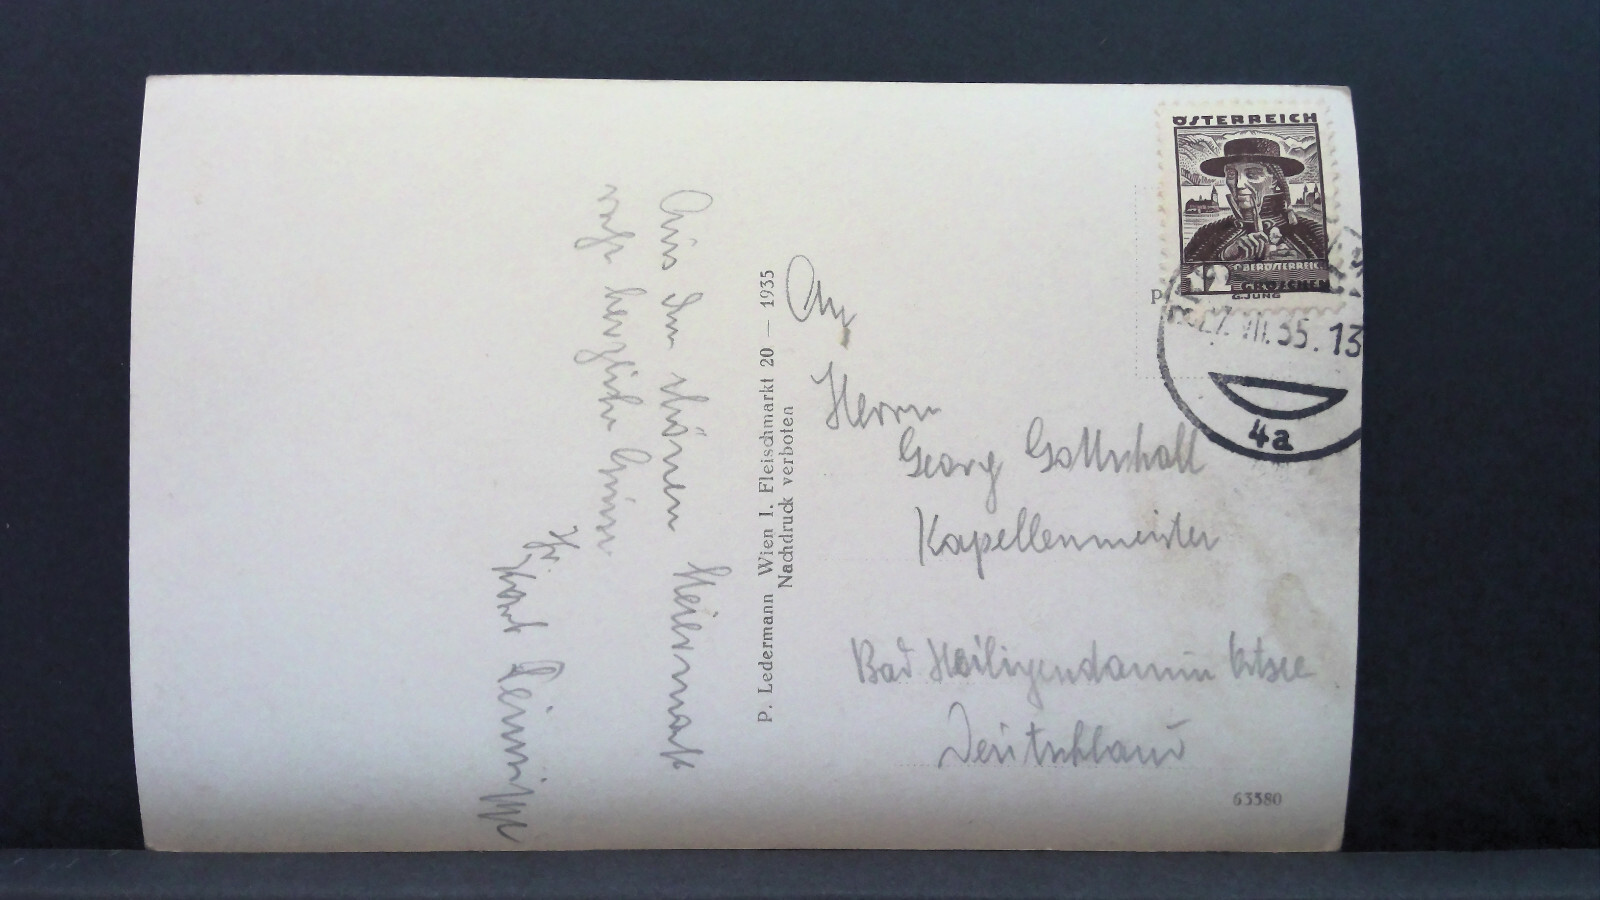 Aus der schönen Steiermark
sehr herzliche Grüsse
P. Ledermann Wien I. Fleischmarkt 20 — 1935
Nachdruck verboten
An
Herrn
Georg Gottschalk
Kapellenmeister
Bad Heiligendamm Ostsee
Deutschland
ÖSTERREICH
12 OBERÖSTERREICH
GROSCHEN
G. JUNG
27. VII. 35. 13
4a
63380